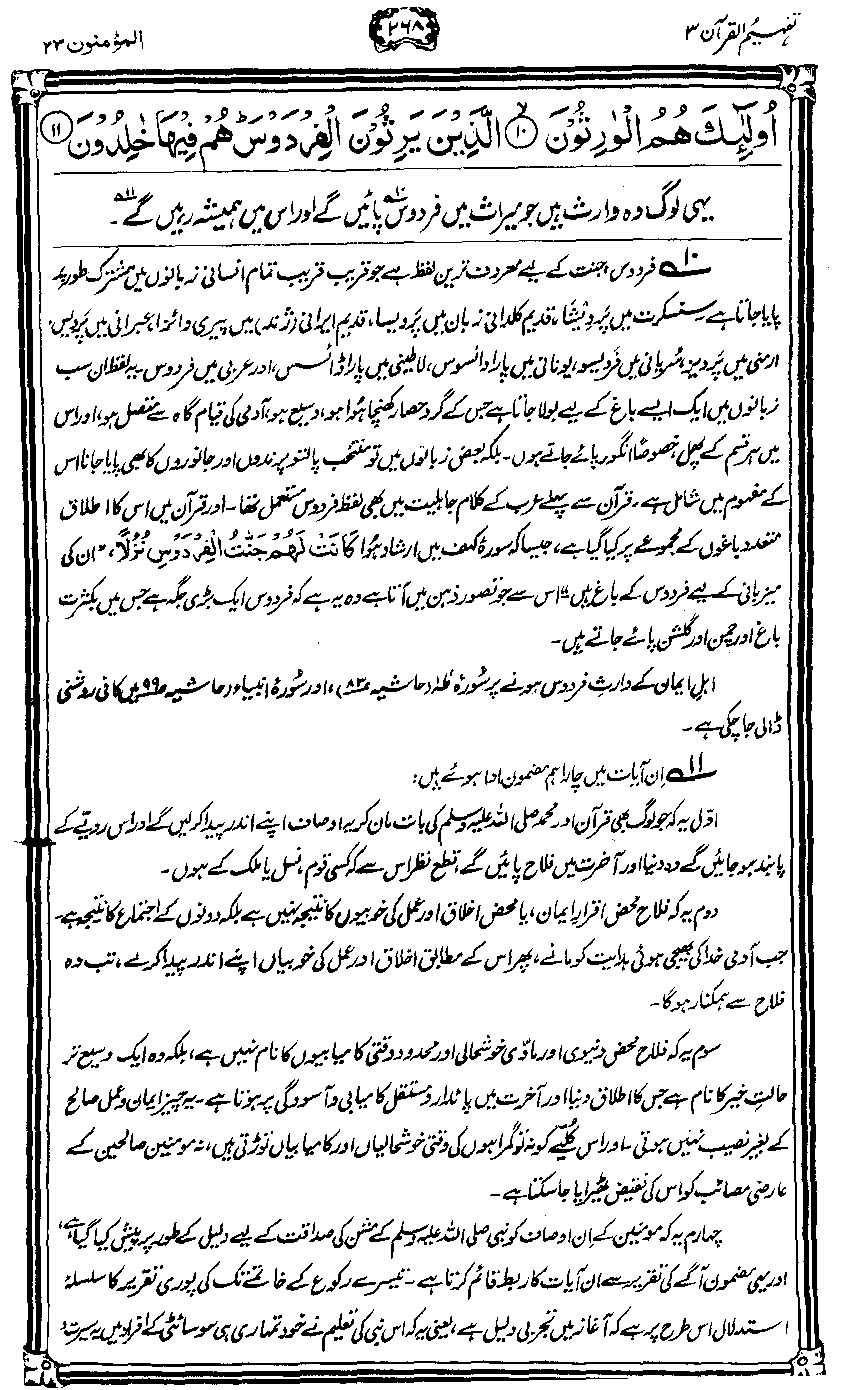 تفہیم القرآن ۳
۲۶۸
المؤمنون ۲۳
اُولٰٓئِكَ هُمُ الْوٰرِثُوْنَ ۙ﴿۱۰﴾ الَّذِيْنَ يَرِثُوْنَ الْفِرْدَوْسَ ؕ هُمْ فِيْهَا خٰلِدُوْنَ ﴿۱۱﴾
یہی لوگ وہ وارث ہیں جو میراث میں فردوس۱۰ پائیں گے اور اس میں ہمیشہ رہیں گے۱۱۔
۱۰ فردوس، جنت کے لیے معروف ترین لفظ ہے جو قریب قریب تمام انسانی زبانوں میں مشترک طور پر
پایا جاتا ہے۔ سنسکرت میں پَردِیشَا، قدیم کلدانی زبان میں پَردیسا، قدیم ایرانی (ژند) میں پیری وائزا، عبرانی میں پَردیس،
ارمنی میں پَردیز، سُریانی میں فَردیسو، یونانی میں پارادائسوس، لاطینی میں پاراڈائسس، اور عربی میں فردوس۔ یہ لفظ ان سب
زبانوں میں ایک ایسے باغ کے لیے بولا جاتا ہے جس کے گرد حصار کھنچا ہوا ہو، وسیع ہو، آدمی کی قیام گاہ سے متصل ہو، اور اس
میں ہر قسم کے پھل خصوصاً انگور پائے جاتے ہوں۔ بلکہ بعض زبانوں میں تو منتخب پالتو پرندوں اور جانوروں کا بھی پایا جانا اس
کے مفہوم میں شامل ہے۔ قرآن سے پہلے عرب کے کلام جاہلیت میں بھی لفظ فردوس مستعمل تھا۔ اور قرآن میں اس کا اطلاق
متعدد باغوں کے مجموعے پر کیا گیا ہے، جیسا کہ سورۂ کہف میں ارشاد ہوا كَانَتْ لَهُمْ جَنّٰتُ الْفِرْدَوْسِ نُزُلًا، ”ان کی
میزبانی کے لیے فردوس کے باغ ہیں“ اس سے جو تصور ذہن میں آتا ہے وہ یہ ہے کہ فردوس ایک بڑی جگہ ہے جس میں بکثرت
باغ اور چمن اور گلشن پائے جاتے ہیں۔
اہلِ ایمان کے وارثِ فردوس ہونے پر سُورۂ طٰہٰ (حاشیہ ۸۳)، اور سُورۂ انبیاء (حاشیہ ۹۹) میں کافی روشنی
ڈالی جا چکی ہے۔
۱۱ اِن آیات میں چار اہم مضمون ادا ہوئے ہیں:
اوّل یہ کہ جو لوگ بھی قرآن اور محمد صلی اللہ علیہ وسلم کی بات مان کر یہ اوصاف اپنے اندر پیدا کرلیں گے اور اس رویّے کے
پابند ہو جائیں گے وہ دنیا اور آخرت میں فلاح پائیں گے، قطع نظر اس سے کہ کسی قوم، نسل یا ملک کے ہوں۔
دوم یہ کہ فلاح محض اقرارِ ایمان، یا محض اخلاق اور عمل کی خوبیوں کا نتیجہ نہیں ہے بلکہ دونوں کے اجتماع کا نتیجہ ہے۔
جب آدمی خدا کی بھیجی ہوئی ہدایت کو مانے، پھر اس کے مطابق اخلاق اور عمل کی خوبیاں اپنے اندر پیدا کرے، تب وہ
فلاح سے ہمکنار ہوگا۔
سوم یہ کہ فلاح محض دنیوی اور مادّی خوشحالی اور محدود وقتی کامیابیوں کا نام نہیں ہے، بلکہ وہ ایک وسیع تر
حالتِ خیر کا نام ہے جس کا اطلاق دنیا اور آخرت میں پائدار و مستقل کامیابی و آسودگی پر ہوتا ہے۔ یہ چیز ایمان و عمل صالح
کے بغیر نصیب نہیں ہوتی۔ اور اس کُلّیے کو نہ تو گمراہوں کی وقتی خوشحالیاں اور کامیابیاں توڑتی ہیں، نہ مومنین صالحین کے
عارضی مصائب کو اس کی نقیض ٹھیرایا جا سکتا ہے۔
چہارم یہ کہ مومنین کے اِن اوصاف کو نبی صلی اللہ علیہ وسلم کے مشن کی صداقت کے لیے دلیل کے طور پر پیش کیا گیا ہے،
اور یہی مضمون آگے کی تقریر سے ان آیات کا ربط قائم کرتا ہے۔ تیسرے رکوع کے خاتمے تک کی پوری تقریر کا سلسلۂ
استدلال اس طرح پر ہے کہ آغاز میں تجربی دلیل ہے، یعنی یہ کہ اس نبی کی تعلیم نے خود تمہاری ہی سوسائٹی کے افراد میں یہ سیرت و